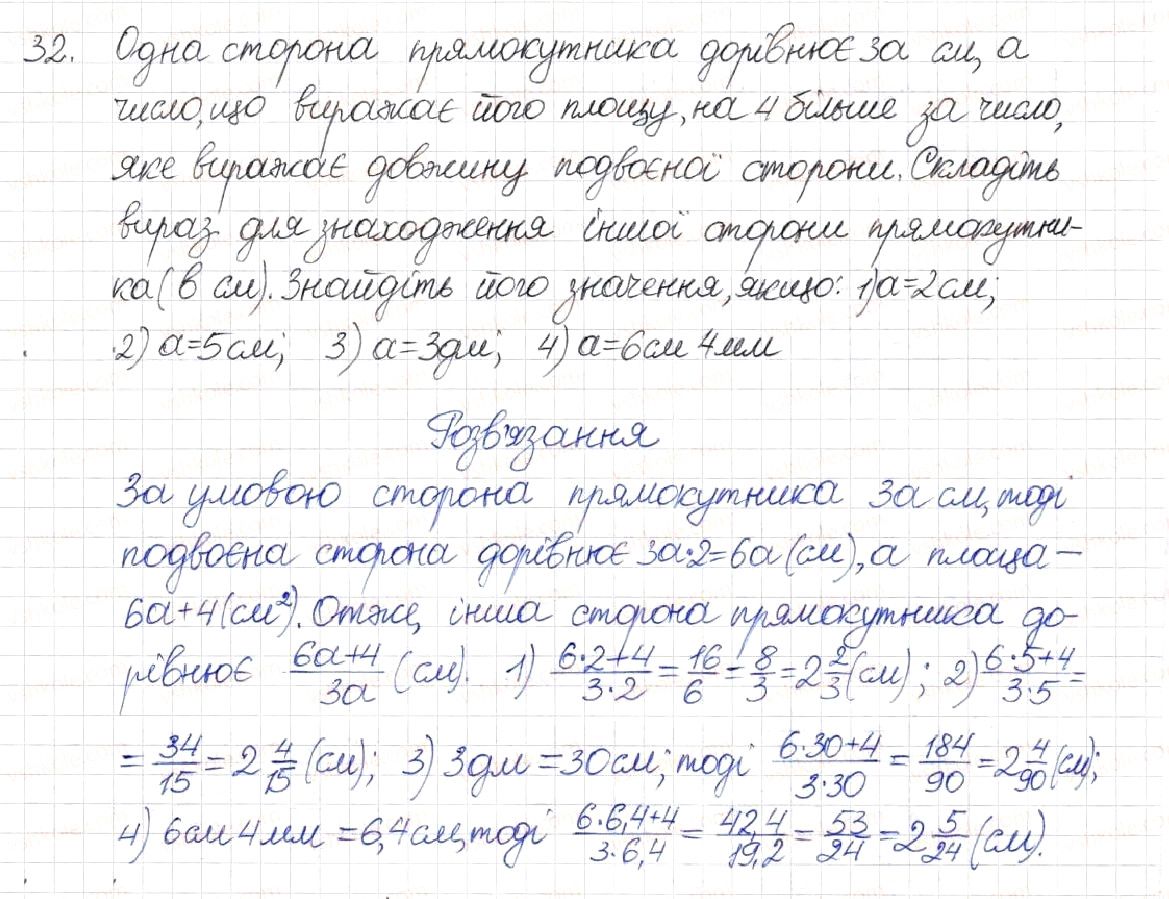 32. Одна сторона прямокутника дорівнює 3a см, а
число, що виражає його площу, на 4 більше за число,
яке виражає довжину подвоєної сторони. Складіть
вираз для знаходження іншої сторони прямокутни-
ка (в см). Знайдіть його значення, якщо: 1) a=2см;
2) a=5см; 3) a=3дм; 4) a=6см 4мм
Розв'язання
За умовою сторона прямокутника 3a см, тоді
подвоєна сторона дорівнює 3a·2=6a (см), а площа —
6a+4 (см²). Отже, інша сторона прямокутника до-
рівнює (6a+4)/(3a) (см). 1) (6·2+4)/(3·2) = 16/6 = 8/3 = 2 2/3 (см); 2) (6·5+4)/(3·5) =
= 34/15 = 2 4/15 (см); 3) 3дм = 30см, тоді (6·30+4)/(3·30) = 184/90 = 2 4/90 (см);
4) 6см 4мм = 6,4см, тоді (6·6,4+4)/(3·6,4) = 42,4/19,2 = 53/24 = 2 5/24 (см).